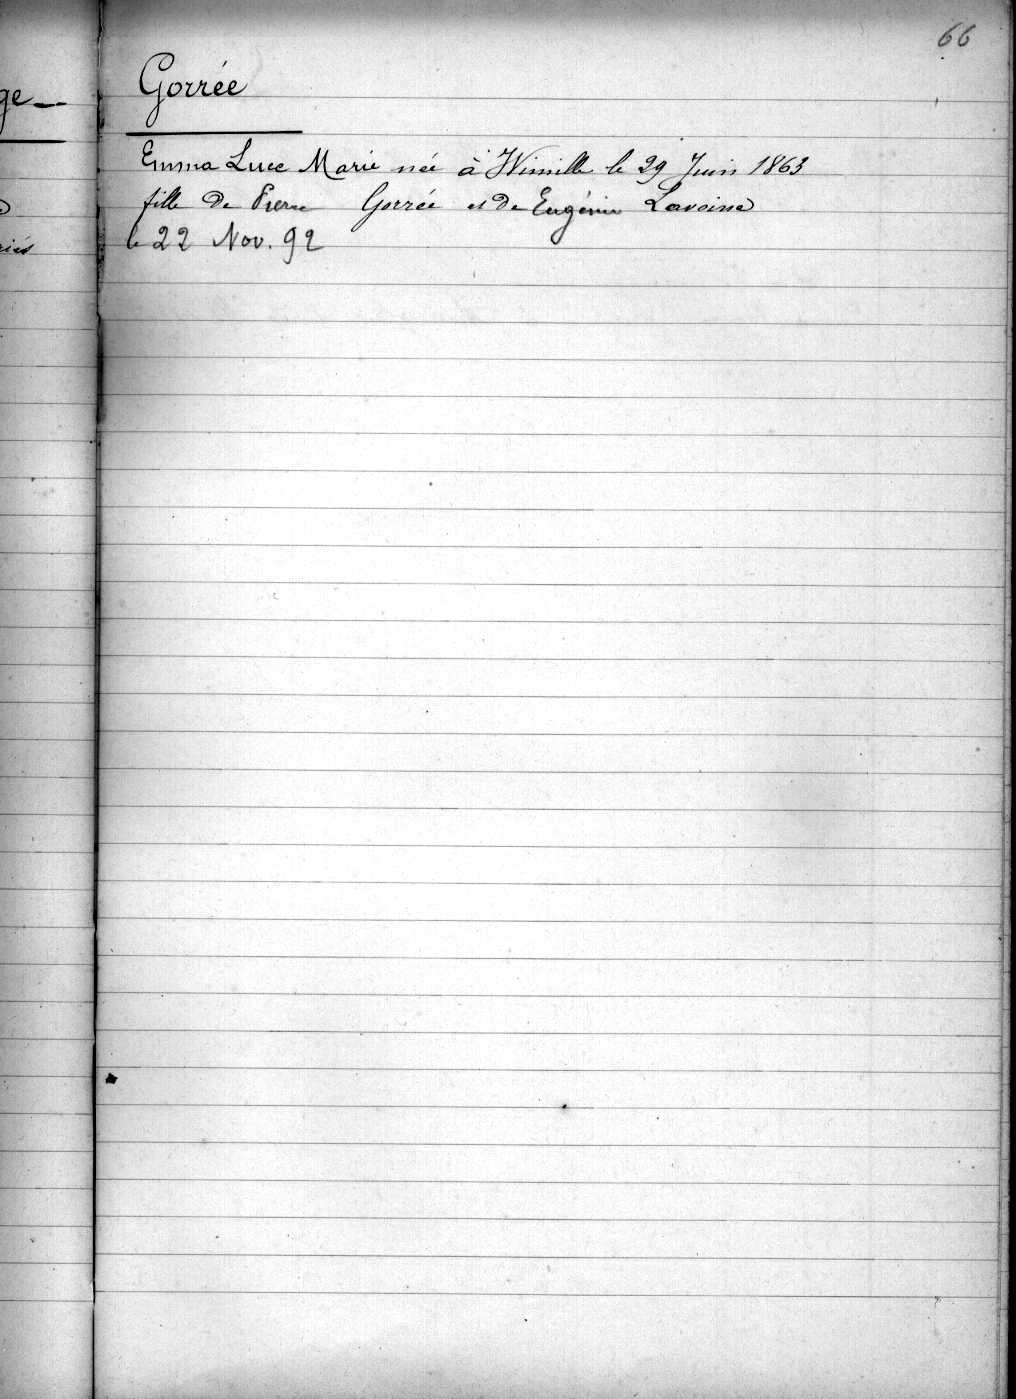 66
ge
Gorrée
Emma Luce Marie née à Wimille le 29 Juin 1863
fille de Pierre Gorrée et de Eugénie Lavoine
le 22 Nov. 92